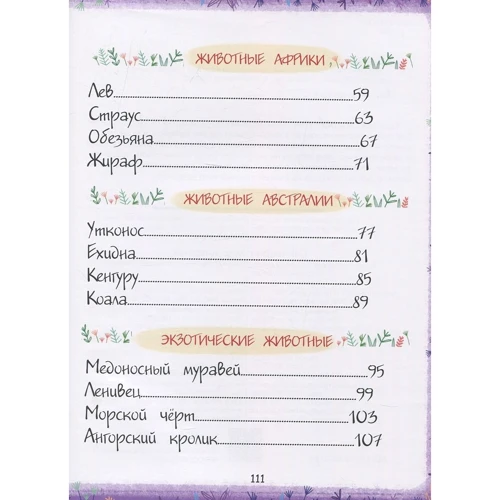 ЖИВОТНЫЕ АФРИКИ
Лев 59
Страус 63
Обезьяна 67
Жираф 71
ЖИВОТНЫЕ АВСТРАЛИИ
Утконос 77
Ехидна 81
Кенгуру 85
Коала 89
ЭКЗОТИЧЕСКИЕ ЖИВОТНЫЕ
Медоносный муравей 95
Ленивец 99
Морской чёрт 103
Ангорский кролик 107
111